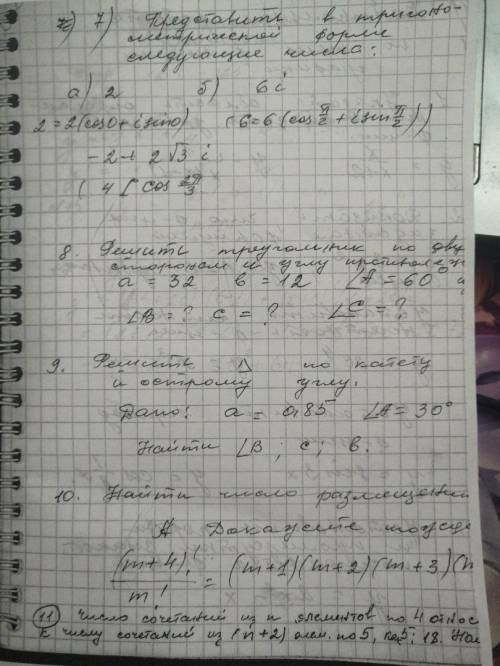 7) Представить в тригоно-
метрической форме
следующие числа:
а) 2 б) 6i
2=2(cos0+isin0) (6=6(cos π/2 + isin π/2))
-2+2√3 i
(4[cos 2π/3
8. Решить треугольник по двум
сторонам и углу
a = 32 в = 12 ∠A = 60°
∠B = ? c = ? ∠C = ?
9. Решить Δ по катету
и острому углу.
Дано: a = 0,85 ∠A = 30°
Найти ∠B; c; в.
10. Найти число размещений
Докажите
(m+4)!/m! = (m+1)(m+2)(m+3)(m
11 Число сочетаний из n элементов по 4 относ
к числу сочетаний из (n+2) элем. по 5, 5; 18. Най